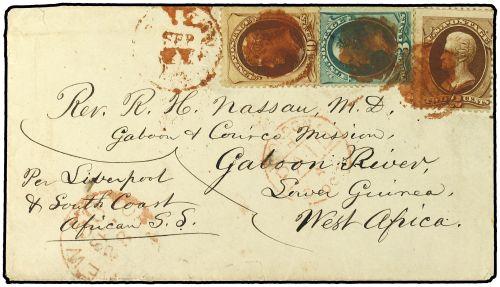 Rev. R. H. Nassau, M.D.
Gaboon & Corisco Mission,
Gaboon River,
Lower Guinea,
West Africa.
Per Liverpool
& South Coast
African S.S.